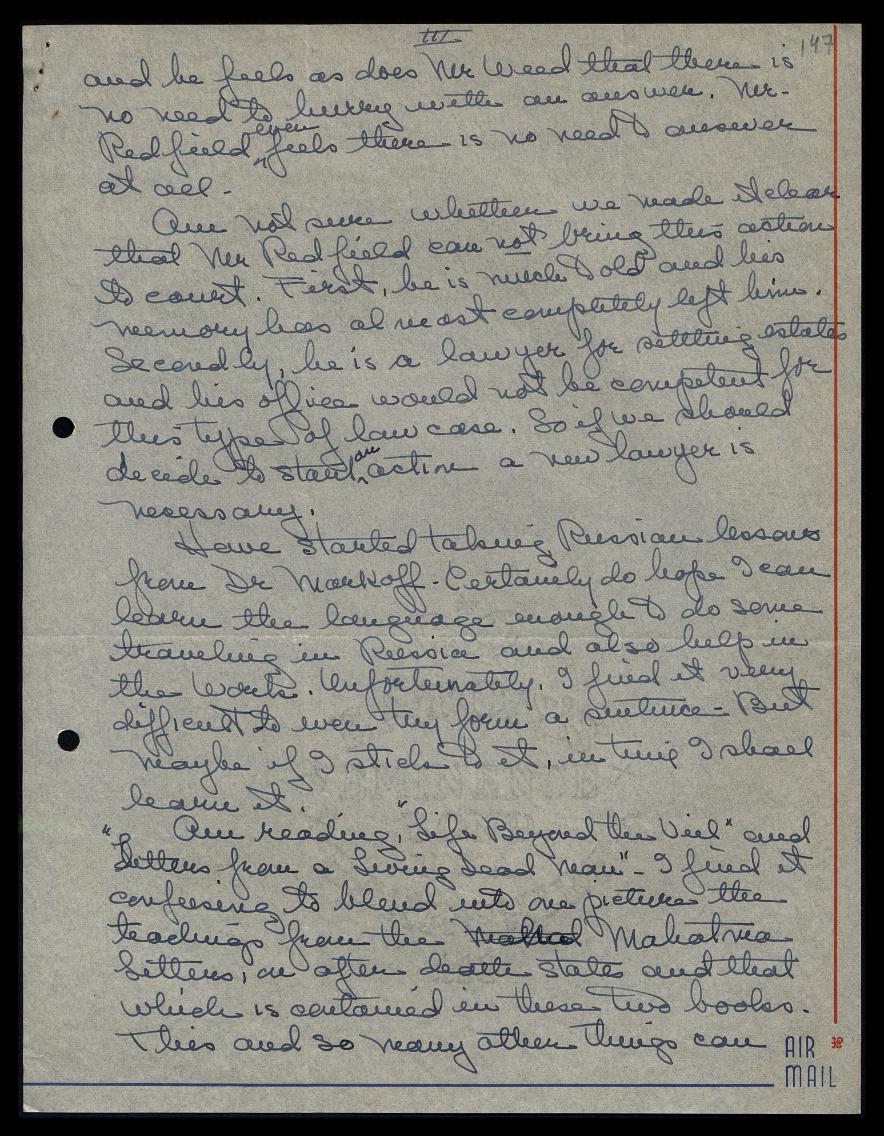 III
147
and he feels as does Mr Weed that there is
no need to hurry with an answer. Mr-
Redfield even feels there is no need to answer
at all-
Am not sure whether we made it clear
that Mr Redfield can not bring this action
to court. First, he is much to old and his
memory has almost completely left him.
Secondly, he is a lawyer for settling estates
and his office would not be competent for
this type of law case. So if we should
decide to start an action a new lawyer is
necessary.
Have started taking Russian lessons
from Dr Markoff- Certainly do hope I can
learn the language enough to do some
traveling in Russia and also help in
the Work. Unfortunately, I find it very
difficult to even try form a sentence- But
maybe if I stick to it, in time I shall
learn it.
Am reading, "Life Beyond the Viel" and
"Letters from a Living Dead Man"- I find it
confusing to blend into one picture the
teachings from the Mahatma
Letters, on after death states and that
which is contained in these two books.
This and so many other things can
AIR 38
MAIL